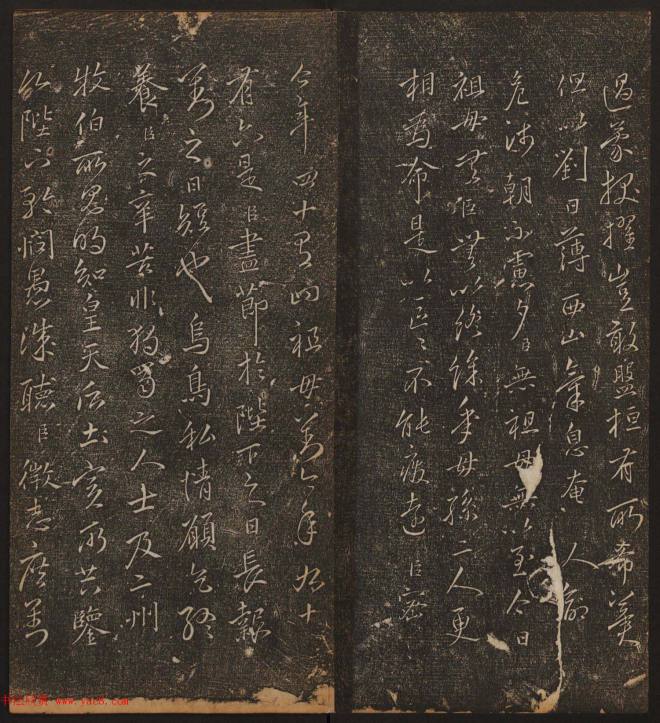 過蒙拔擢豈敢盤桓有所希冀
但以劉日薄西山氣息奄〻人命
危淺朝不慮夕臣無祖母無以至今日
祖母無臣無以終餘年母孫二人更
相為命是以區〻不能廢遠臣密
今年四十有四祖母劉今年九十
有六是臣盡節於陛下之日長報
劉之日短也烏鳥私情願乞終
養臣之辛苦非獨蜀之人士及二州
牧伯所見明知皇天后土實所共鑒
願陛下矜憫愚誠聽臣微志庶劉
书法欣赏 www.yac8.com